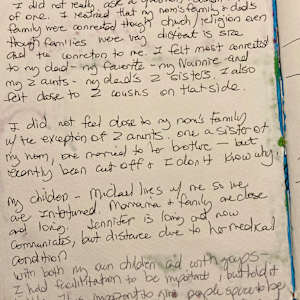 I did not really ask a question
of one. I resented that my mom's family & dad's
family were connected through church/religion even
though families were very different is size
and the connection to me. I felt most connected
to my dad - my favorite - my Nannie - and
my 2 aunts - my dad's 2 sisters. I also
felt close to 2 cousins on that side.
I did not feel close to my mom's family
w/ the exception of 2 aunts, one a sister of
my mom, one married to her brother - but
recently been cut off & I don't know why.
my children - Michael lives w/ me so we
are intertwined. & family are close
and loving. Jennifer is long and now
communicates, but distance due to her medical
condition
with both my own children and with groups -
I had facilitation to be important, but hold it
important to people